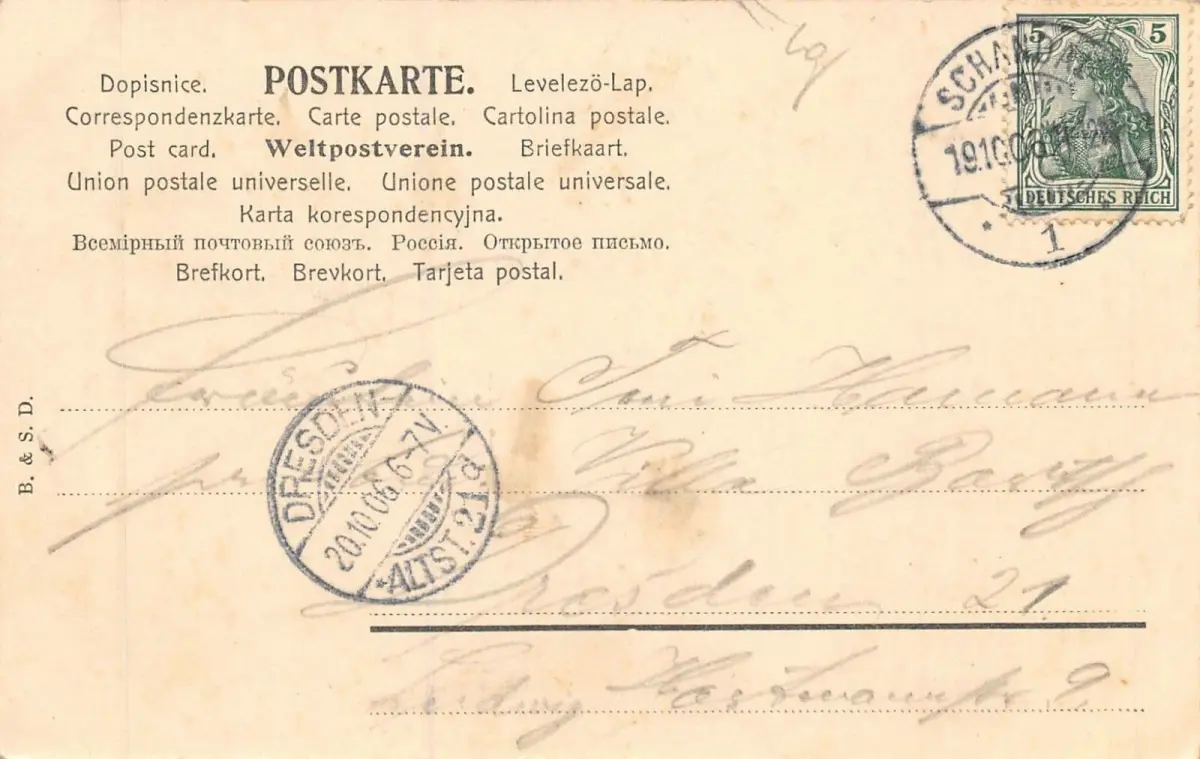 Dopisnice. POSTKARTE. Levelezö-Lap.
Correspondenzkarte. Carte postale. Cartolina postale.
Post card. Weltpostverein. Briefkaart.
Union postale universelle. Unione postale universale.
Karta korespondencyjna.
Всемірный почтовый союзъ. Россія. Открытое письмо.
Brefkort. Brevkort. Tarjeta postal.
5 5
DEUTSCHES REICH
SCHAND
19.10.06
* 1
B. & S. D.
DRESDEN-
20.10.06 6-7V.
*ALTST. 21 d
Fräulein Toni Hamann
Villa Barthy
Dresden 21.
Ludwig Hartmannstr 9.